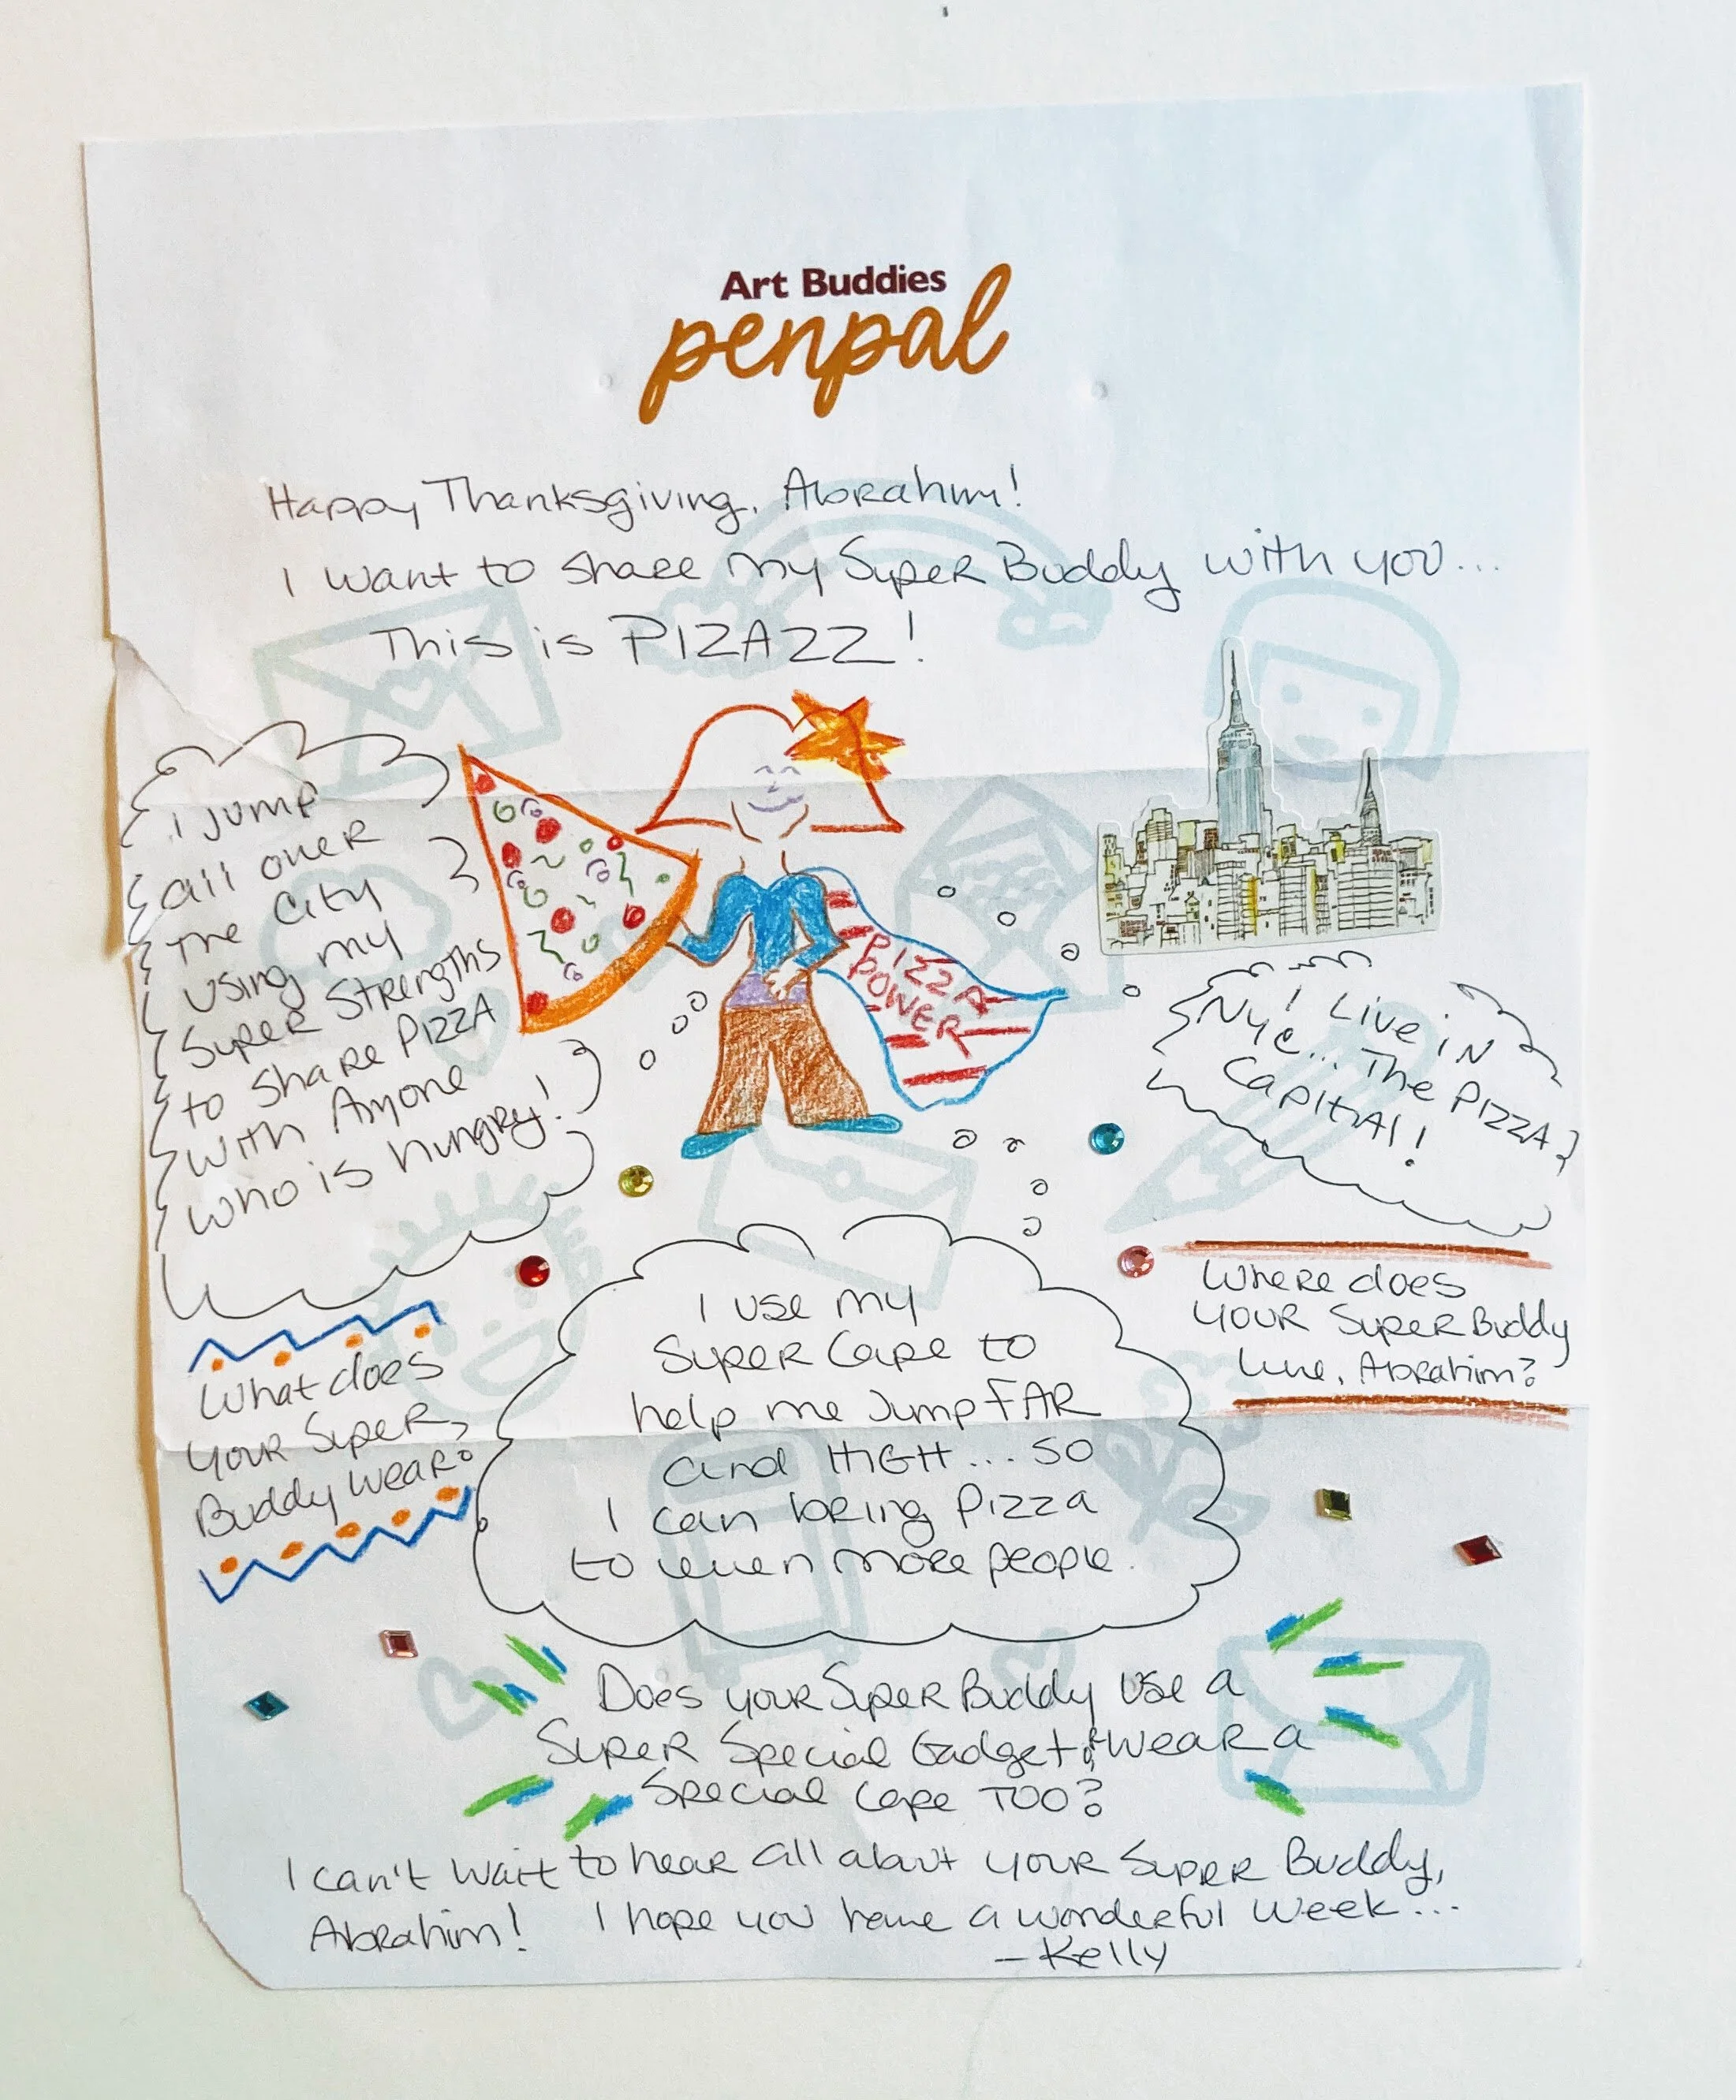 Art Buddies
penpal
Happy Thanksgiving, Abrahim!
I want to share my Super Buddy with you...
This is PIZAZZ!
I jump
all over
the City
using my
Super Strengths
to share Pizza
with Anyone
who is hungry!
PIZZA
POWER
I Live in
NYC... The Pizza
Capital!
Where does
your Super Buddy
live, Abrahim?
What does
your Super
Buddy wear?
I use my
Super Cape to
help me Jump FAR
and HIGH... so
I can bring Pizza
to even more people.
Does your Super Buddy use a
Super Special Gadget & wear a
Special Cape TOO?
I can't wait to hear all about your Super Buddy,
Abrahim! I hope you have a wonderful week...
- Kelly